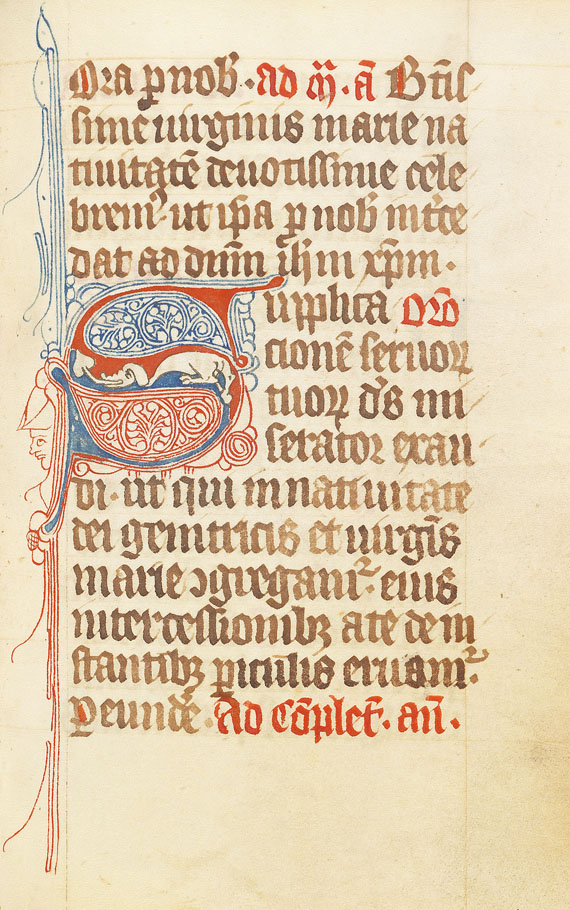 Ora ꝑ nob̅ · ad m̅ · a̅ Bt̅is
sime uirginis marie na
tiuitate̅ deuotissime cele
brem᷑ · ut ip̅a ꝑ nob̅ int̅ce
dat ad dn̅m ih̅m xp̅m ·
Supplica Oro̅
cione̅ seruoꝝ
tuoꝝ d̅s mi
serator exau
di · ut qui in natiuitate
dei genitricis et uirgi̅s
marie ↄgregam᷑ · eiꝰ
intercessionibꝫ a te de in
stantibꝫ ꝑiculis eruam᷑ ·
P eunde̅ · Ad Co̅plet̅ · an̅ ·